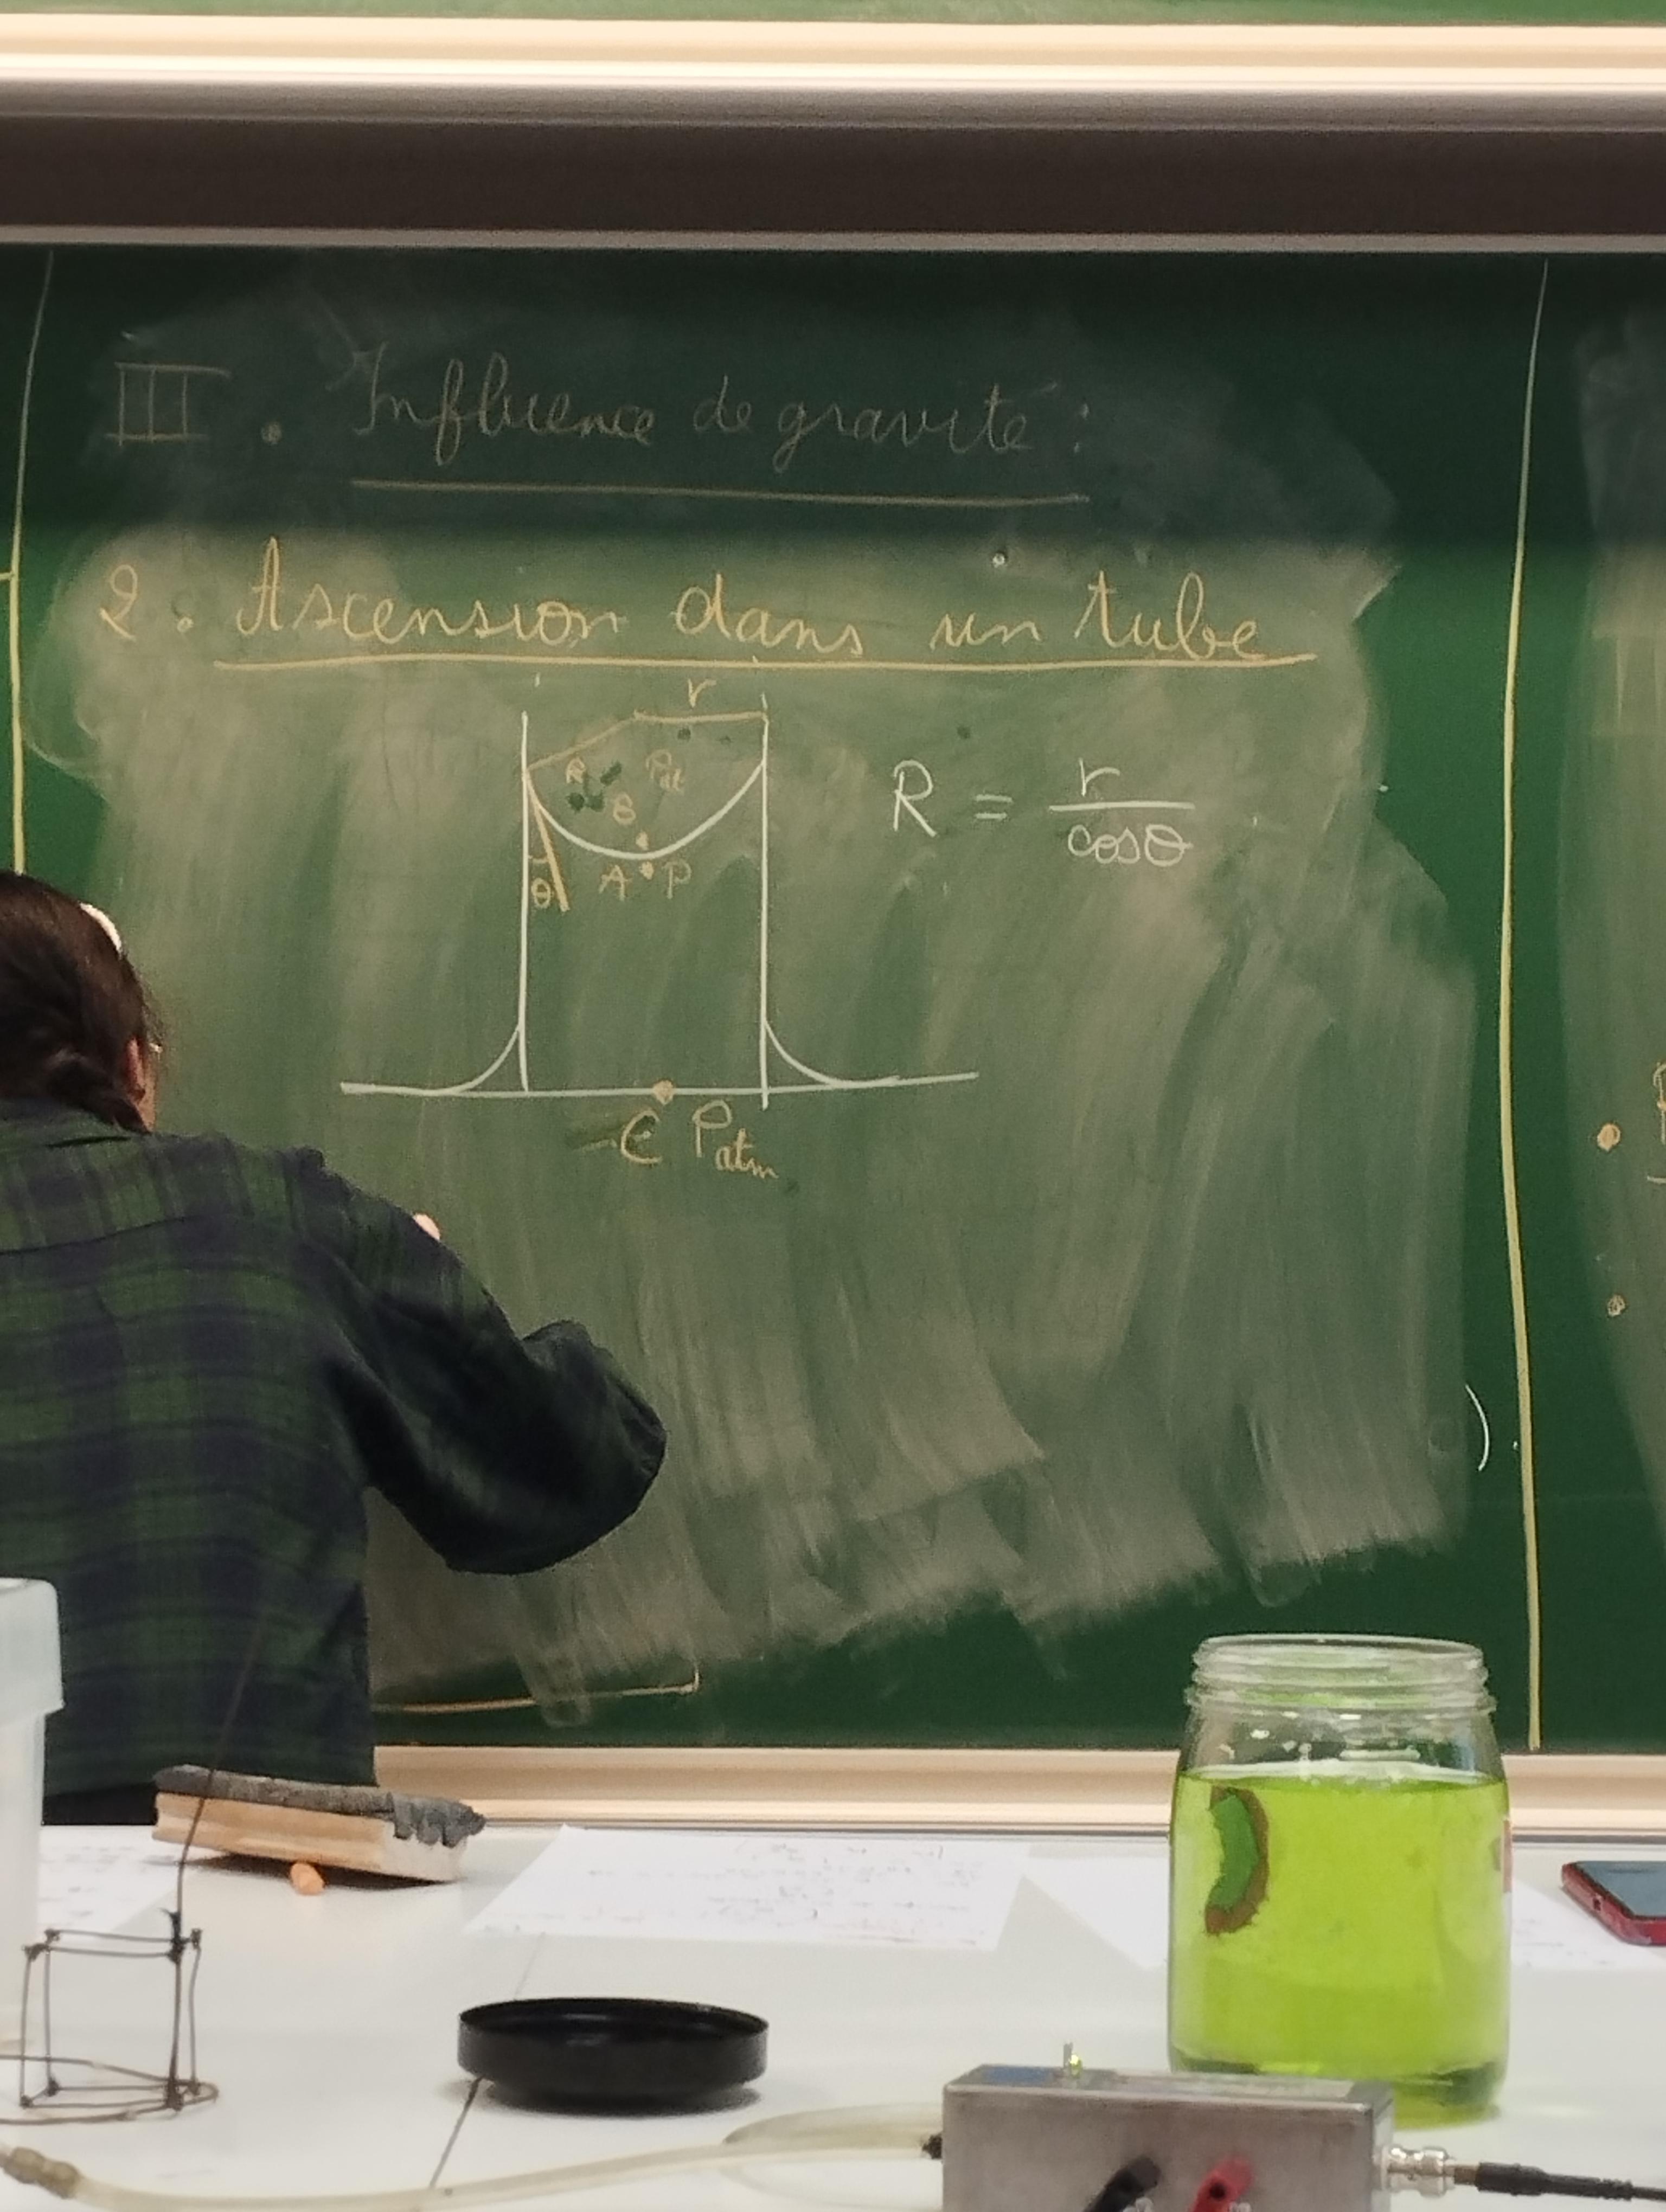 III. Influence de gravité :
2. Ascension dans un tube
r
R
Pat
B
R = r / cosθ
θ
A P
C Patm